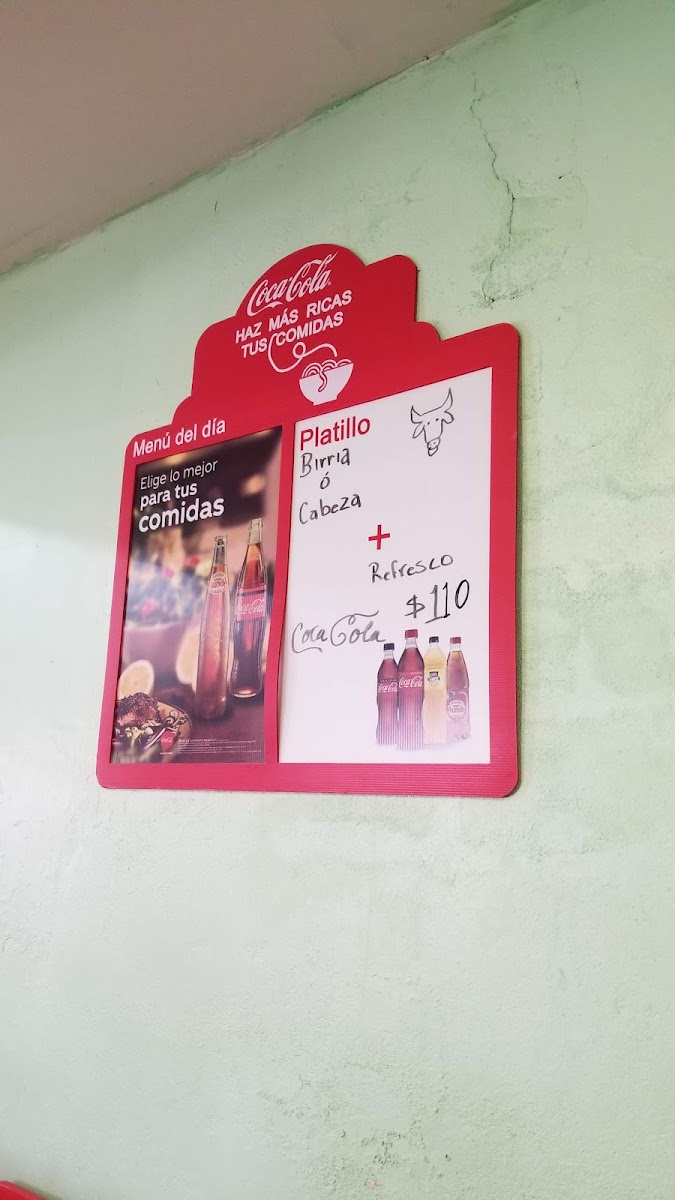 Coca-Cola
HAZ MÁS RICAS
TUS COMIDAS
Menú del día
Elige lo mejor
para tus
comidas
Coca-Cola
Platillo
Birria
ó
Cabeza
+
Refresco
$110
Coca Cola
Coca-Cola
Coca-Cola